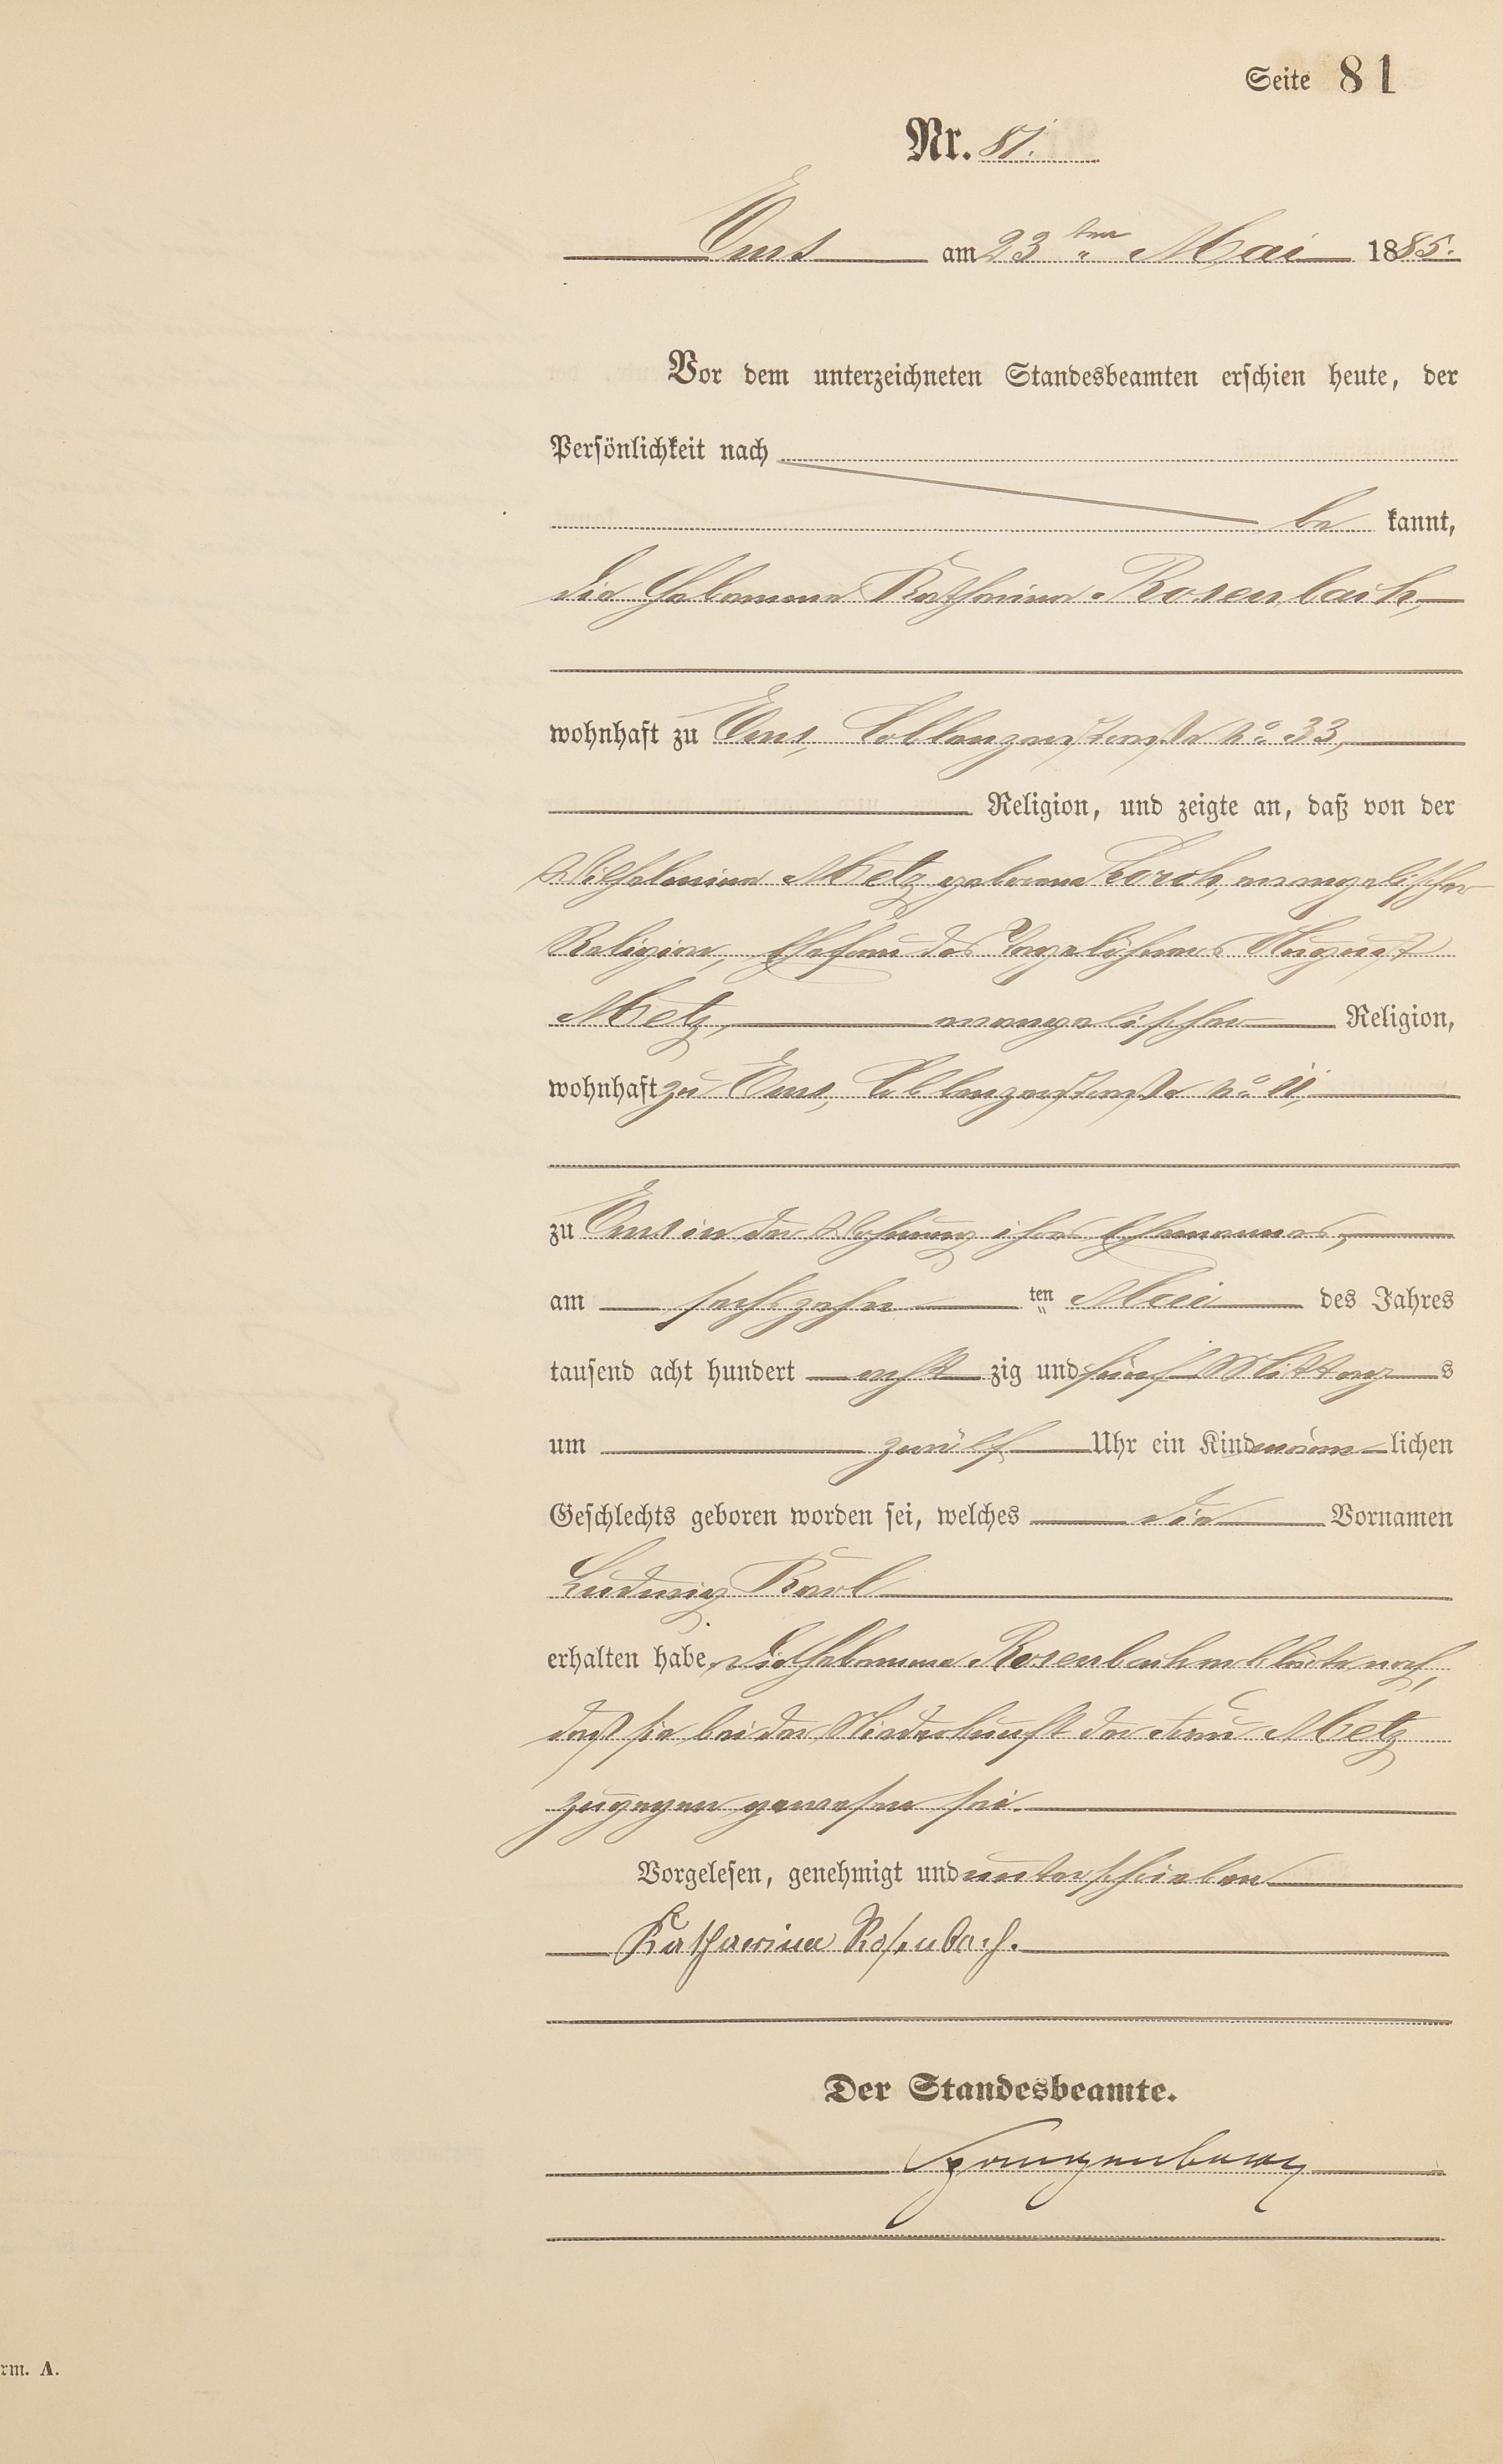 Seite 81
Nr. 81.
Ems am 23 ten Mai 1885.
Vor dem unterzeichneten Standesbeamten erschien heute, der
Persönlichkeit nach
be kannt,
die Hebamme Katharina Rosenbach,
wohnhaft zu Ems, Coblenzerstraße No 33,
Religion, und zeigte an, daß von der
Wilhelmine Metz geborene evangelischer
Religion, Ehefrau des Tagelöhners August
Metz, evangelischer Religion,
wohnhaft zu Ems, Coblenzerstraße No 11,
zu Ems in der Wohnung ihres Ehemannes,
am sechszehn ten Mai des Jahres
tausend acht hundert acht zig und fünf Mittag s
um zwölf Uhr ein Kind männ lichen
Geschlechts geboren worden sei, welches die Vornamen
Ludwig Karl
erhalten habe. Die Hebamme Rosenbach erklärte noch,
daß sie bei der Niederkunft der Frau Metz
zugegen gewesen sei.
Vorgelesen, genehmigt und unterschrieben
Katharina Rosenbach.
Der Standesbeamte.
rm. A.